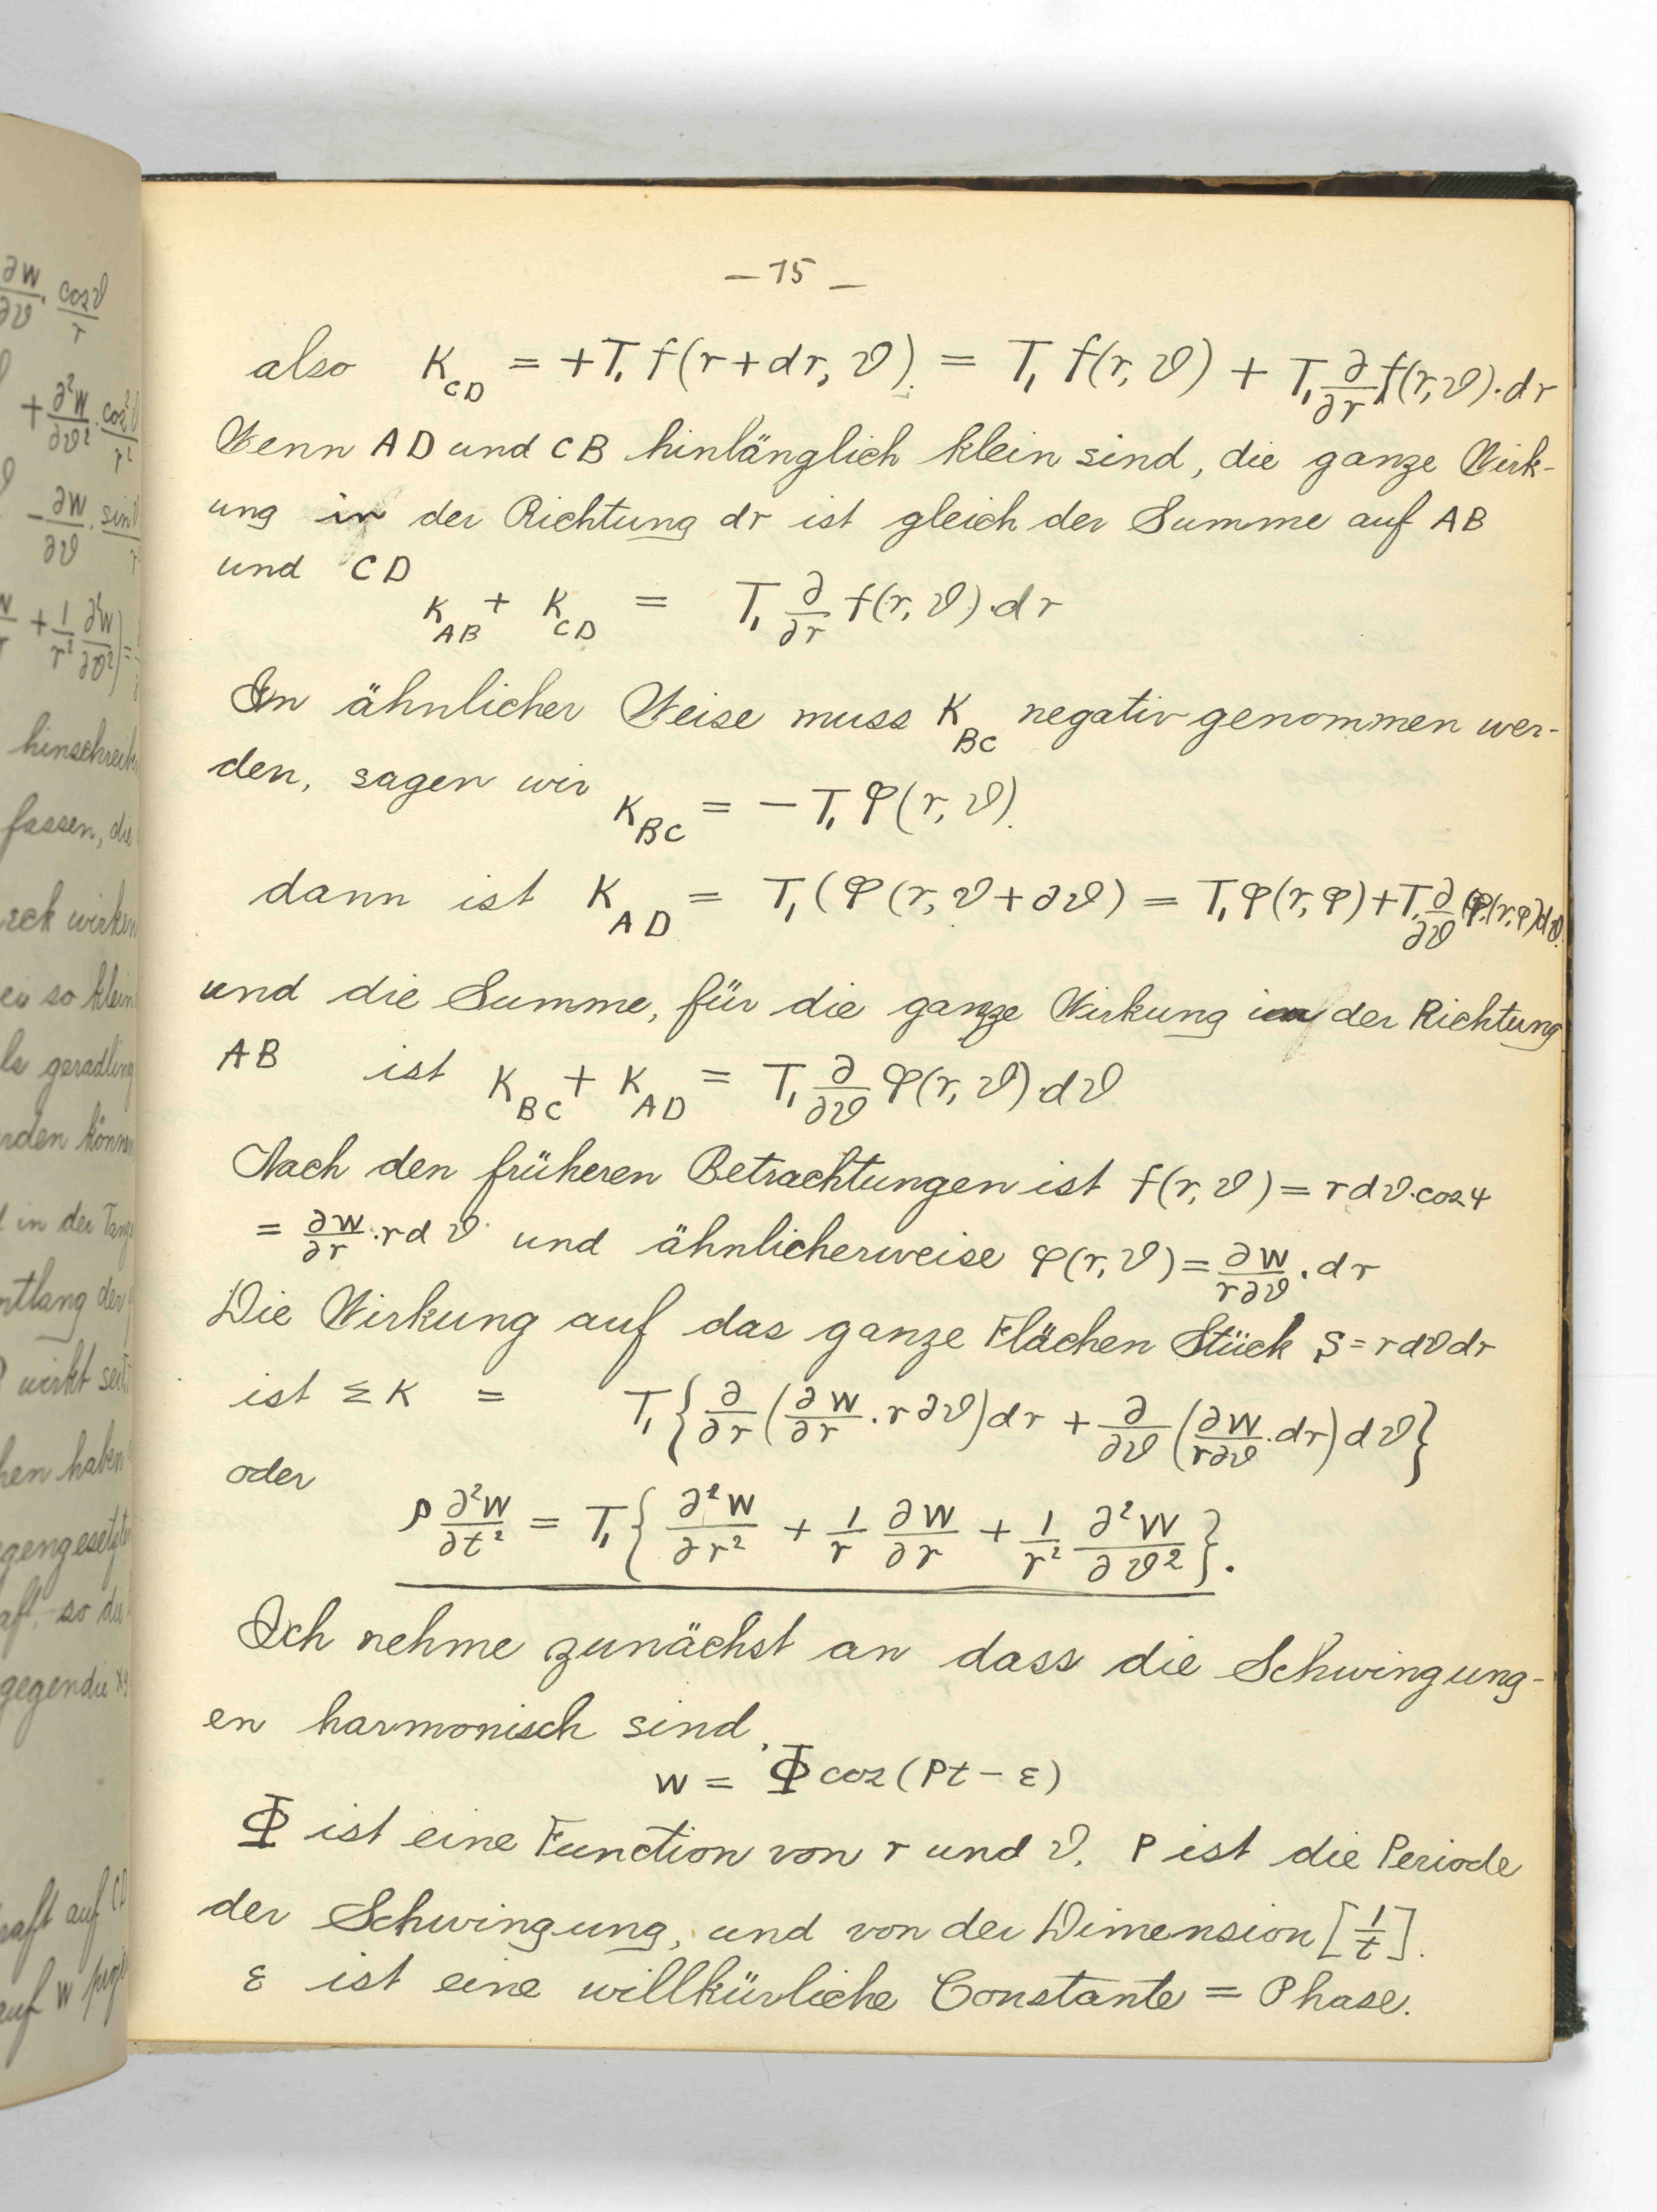 ∂w/∂ϑ · cosϑ/r
+ ∂²w/∂ϑ² · cos²ϑ/r²
- ∂w/∂ϑ · sinϑ
+ 1/r² ∂²w/∂ϑ²) =
hinschreib
fassen, die
wirken
so klein
geradling
können
in der Tang
entlang der
wirkt seit
haben
so du
gegen die xy
Kraft auf CD
auf w
— 15 —
also K_CD = +T₁ f(r+dr, ϑ). = T₁ f(r,ϑ) + T₁ ∂/∂r f(r,ϑ)·dr
Wenn AD und CB hinlänglich klein sind, die ganze Wirk-
ung in der Richtung dr ist gleich der Summe auf AB
und CD
K_AB + K_CD = T₁ ∂/∂r f(r,ϑ)·dr
In ähnlicher Weise muss K_BC negativ genommen wer-
den, sagen wir
K_BC = — T₁ φ(r,ϑ).
dann ist K_AD = T₁ (φ(r,ϑ+∂ϑ) = T₁ φ(r,φ) + T₁ ∂/∂ϑ (φ(r,φ)dϑ.
und die Summe, für die ganze Wirkung in der Richtung
AB ist K_BC + K_AD = T₁ ∂/∂ϑ φ(r,ϑ)·dϑ
Nach den früheren Betrachtungen ist f(r,ϑ) = rdϑ·cosψ
= ∂w/∂r · rdϑ und ähnlicherweise φ(r,ϑ) = ∂w/r∂ϑ · dr
Die Wirkung auf das ganze Flächen Stück S = rdϑdr
ist ΣK = T₁ {∂/∂r (∂w/∂r · r∂ϑ)dr + ∂/∂ϑ (∂w/r∂ϑ · dr)dϑ}
oder
ρ ∂²w/∂t² = T₁ {∂²w/∂r² + 1/r ∂w/∂r + 1/r² ∂²w/∂ϑ²}.
Ich nehme zunächst an dass die Schwingung-
en harmonisch sind,
w = Φ cos(Pt - ε)
Φ ist eine Function von r und ϑ. P ist die Periode
der Schwingung, und von der Dimension [1/t].
ε ist eine willkürliche Constante = Phase.